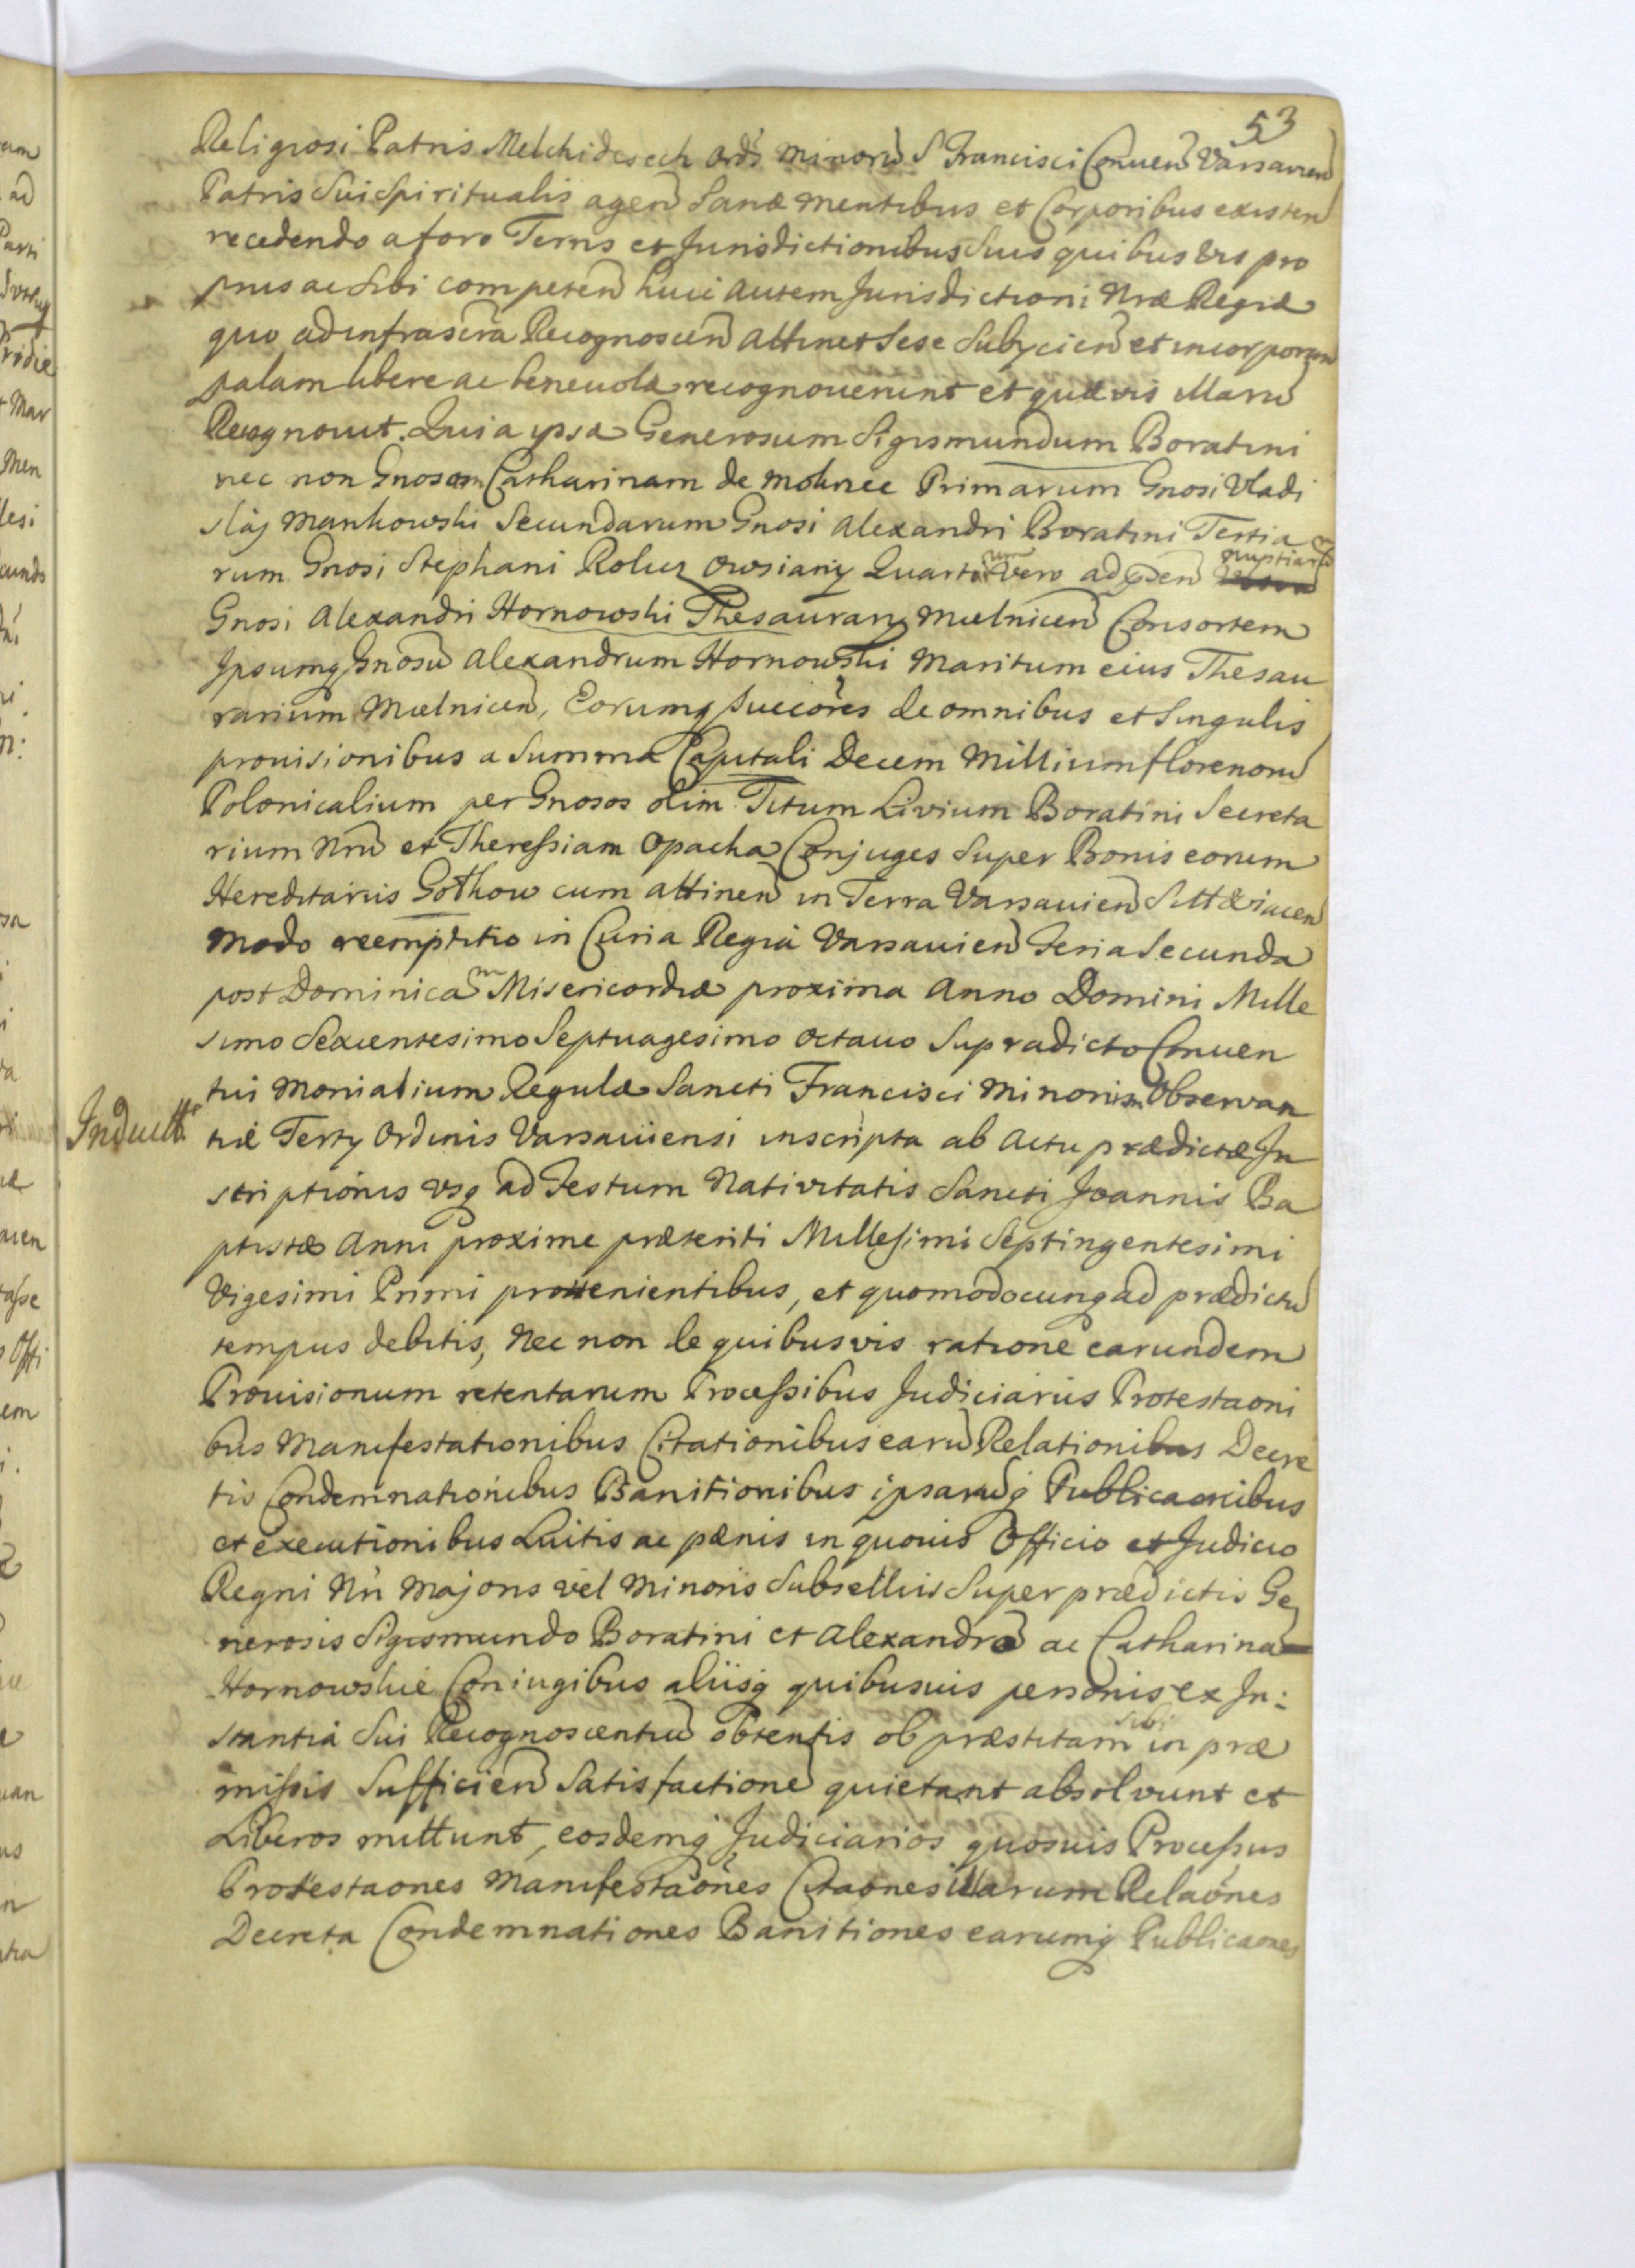 53
Religiosi Patris Melchidesech Ordis Minorũ S Francisci Conuen Varsavien
Patris Sui Spiritualis agen Sanæ mentibus et Corporibus existen
recedendo a foro Terris et Jurisdictionibus Suis quibus vis pro
prys ac Sibi competen huic autem Jurisdictioni Nræ Regiæ
quo ad infrascra Recognoscen attinet Sese Subycien et incorporan
palam libere ac beneuole recognouerunt et quævis Earu
Recognouit. Quia ipsæ Generosum Sigismundum Boratini
nec non Gnosam Catharinam de Mokrce Primarum Gnosi Vladi
slaj Mankowski Secundarum Gnosi Alexandri Boratini Tertia
rum Gnosi Stephani Roluz Owsiany Quartarum Vero ad pñs nuptiarũ
Gnosi Alexandri Hornowski Thesaurary Mielnicen Consortem
Ipsumq Gnosũ Alexandrum Hornowski Maritum eius Thesau
rarium Mielnicen, Eorumq Succores de omnibus et Singulis
prouisionibus a Summa Capitali Decem Millium florenorũ
Polonicalium per Gnosos olim Titum Livium Boratini Secreta
rium Nrũ et Theressiam Opacka Conjuges Super Bonis eorum
Hereditariis Gołkow cum attinen in Terra Varsauien Sitt & iacen
Modo reemptitio in Curia Regia Varsauien Feria Secunda
post Dominicam Misericordiæ proxima Anno Domini Mille
simo Sexcentesimo Septuagesimo Octauo Supradicto Conuen
tui Monialium Regulæ Sancti Francisci Minoris Observan
Inductt. tiæ Terty Ordinis Varsauiensi inscripta ab Actu prædictæ In
scriptionis vsq ad Festum Nativitatis Sancti Joannis Ba
ptistæ Anni proxime præteriti Millesimi Septingentesimi
Vigesimi Primi prouenientibus, et quomodocunq ad prædictũ
tempus debitis, Nec non de quibusvis ratione earundem
Prouisionum retentarum Processibus Judiciariis Protestaoni
bus Manifestationibus Citationibus earũ Relationibus Decre
tis Condemnationibus Banitionibus ipsarũq Publicaonibus
et executionibus Luitis ac pænis in quouis Officio et Judicio
Regni Nri Majoris vel Minoris Subsellii Super prædictis Ge
nerosis Sigismundo Boratini et Alexandro ac Catharina
Hornowskie Coniugibus aliisq quibusuis personis ex In:
stantia Sui Recognoscentiũ obtentis ob præstitam sibi in præ
missis Sufficien Satisfactione quietant absolvunt et
Liberos mittunt, eosdemq Judiciarios quosuis Processus
Protestaones Manifestaones Citaones illarum Relaones
Decreta Condemnationes Banitiones earumq Publicaones